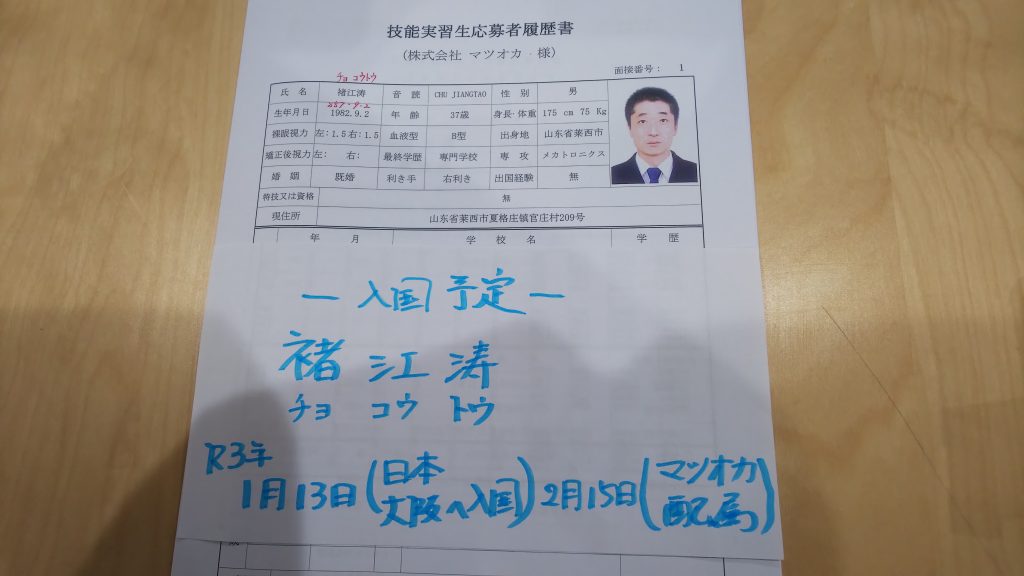 技能実習生応募者履歴書
(株式会社 マツオカ 様)
面接番号: 1
チョ コウトウ
氏 名 褚江涛 音 読 CHU JIANGTAO 性 別 男
S57.9.2
生年月日 1982.9.2 年 齢 37歳 身長・体重 175 cm 75 Kg
裸眼視力 左:1.5 右:1.5 血液型 B型 出身地 山东省莱西市
矯正後視力 左: 右: 最終学歴 専門学校 専 攻 メカトロニクス
婚 姻 既婚 利き手 右利き 出国経験 無
特技又は資格 無
現住所 山东省莱西市夏格庄镇官庄村209号
年 月 学 校 名 学 歴
― 入国 予定 ―
褚 江 涛
チョ コウ トウ
R3年
1月13日(日本 大阪へ入国) 2月15日(マツオカ 配属)